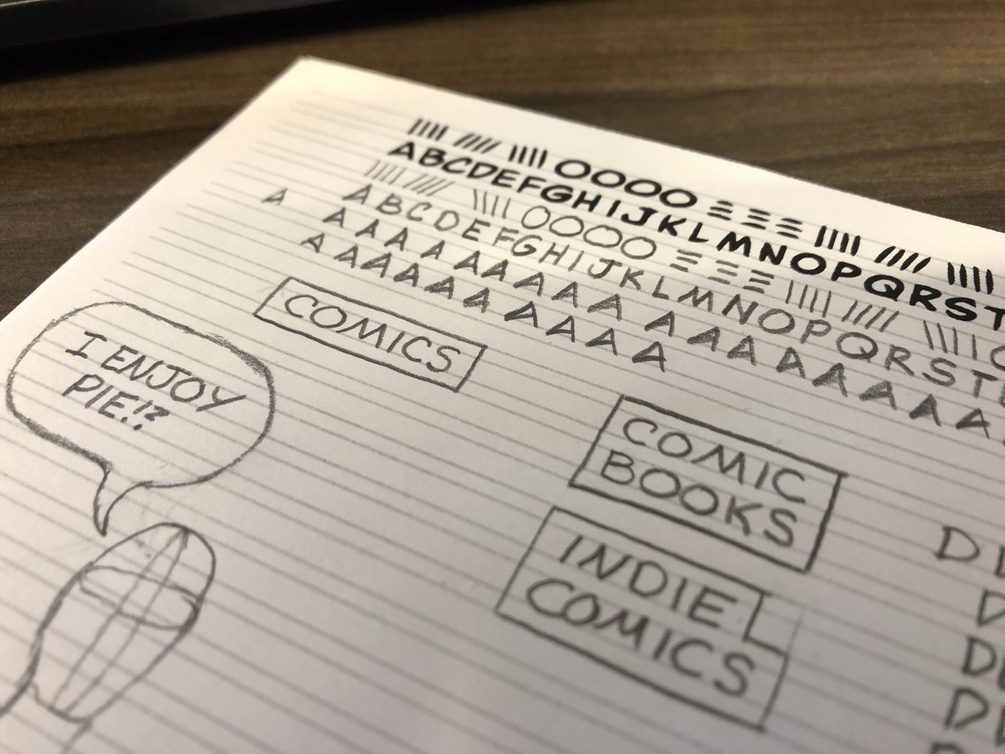 ABCDEFGHIJKLMNOPQRST
ABCDEFGHIJKLMNOPQRST
COMICS
I ENJOY
PIE!!?
COMIC
BOOKS
INDIE
COMICS